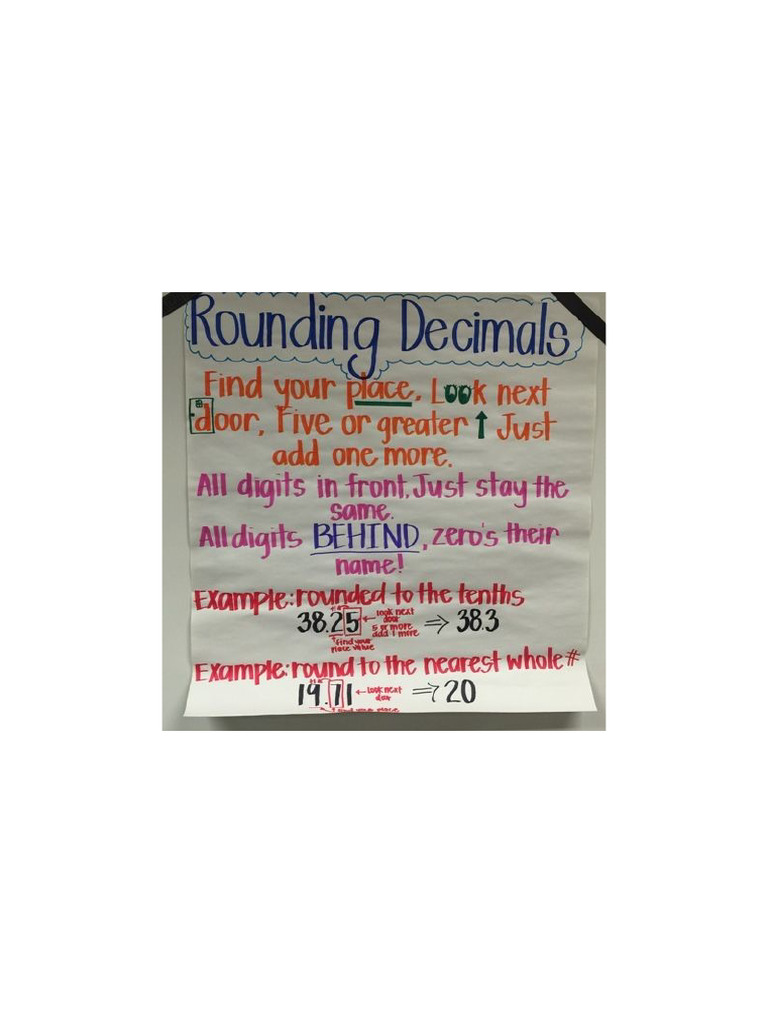 Rounding Decimals
Find your place. Look next
door, Five or greater ↑ Just
add one more.
All digits in front, Just stay the
same.
All digits BEHIND, zero's their
name!
Example: rounded to the tenths
38.25 ← look next door 5 or more add 1 more ⇒ 38.3
↑ find your place value
Example: round to the nearest whole #
19.71 ← look next door ⇒ 20
↑ find your place